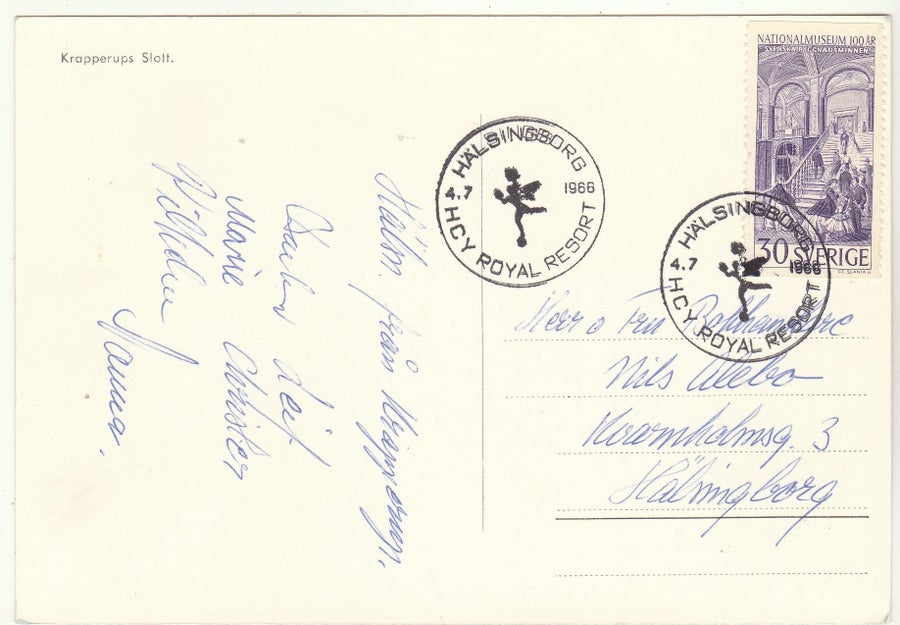 Krapperups Slott.
NATIONALMUSEUM 100 ÅR
SVENSKA BYGGNADSMINNEN
30 SVERIGE
CZ. SLANIA SC.
HÄLSINGBORG
4.7 1966
HCY ROYAL RESORT
HÄLSINGBORG
4.7 1966
HCY ROYAL RESORT
Herr o Fru
Nils
Kvarnholmsg. 3
Hälsingborg
från Krapperup.
Leif
Marie Christer